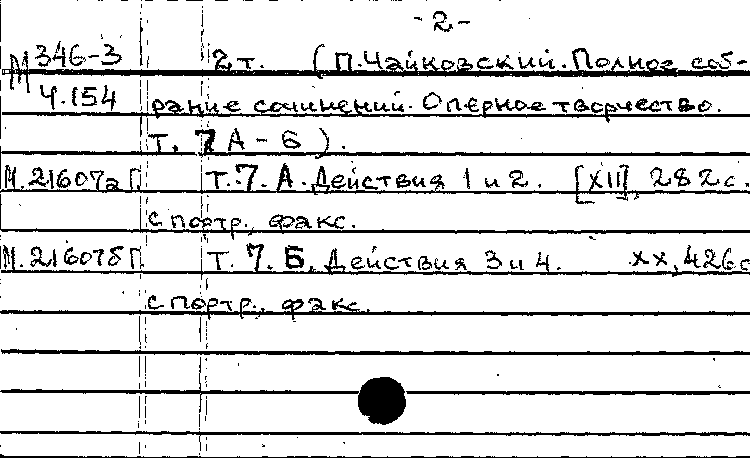 -2-
М 346-3 2 т. (П. Чайковский. Полное соб-
Ч.154 рание сочинений. Оперное творчество.
т. 7 А - Б).
М.21607а Г. Т. 7. А. Действия 1 и 2. [XII], 282 с.
с портр., факс.
М.21607б Г. Т. 7. Б. Действия 3 и 4. XX, 426 с
с портр., факс.